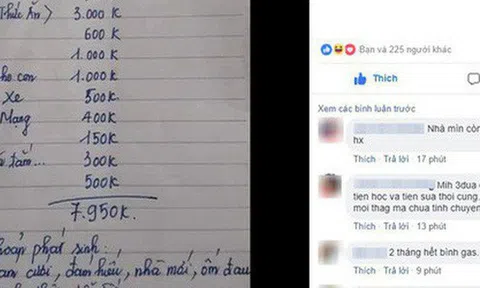 Thức Ăn) 3.000K
600K
1.000K
cho con 1.000K
Xe 500K
Mạng 400K
150K
tắm... 300K
500K
7.950K.
phát sinh:
cưới, đám hiếu, nhà mới, ốm đau
Bạn và 225 người khác
Thích
Xem các bình luận trước
Nhà mìn còn
hx
Thích · Trả lời · 17 phút
Mih 3dua
tien học va tien sua thoi cung.
moi thag ma chua tinh chuyen
Thích · Trả lời · 13 phút
2 tháng hết bình gas.
Thích · Trả lời · 9 phút